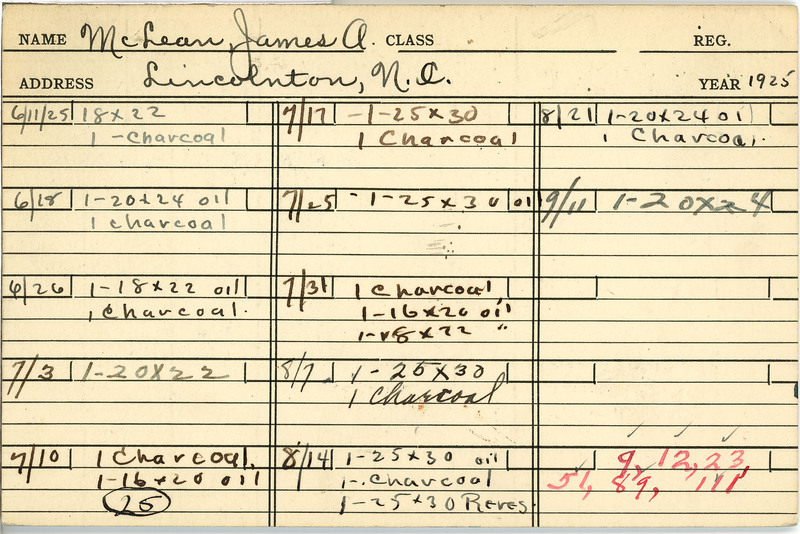 NAME McLean, James A. CLASS REG.
ADDRESS Lincolnton, N.C. YEAR 1925
6/11/25 18x22
1 - charcoal
6/18 1-20x24 oil
1 charcoal
6/26 1-18x22 oil
1 charcoal.
7/3 1-20x22
7/10 1 Charcoal,
1-16x20 oil
25
7/17 -1-25x30
1 Charcoal
7/25 - 1-25x30 oil
7/31 1 Charcoal,
1-16x20 oil
1-18x22 "
8/7 1-25x30
1 Charcoal
8/14 1-25x30 oil
1-charcoal
1-25x30 Reves.
8/21 1-20x24 oil
1 Charcoal.
9/11 1-20x24
9, 12, 23,
51, 89, 111